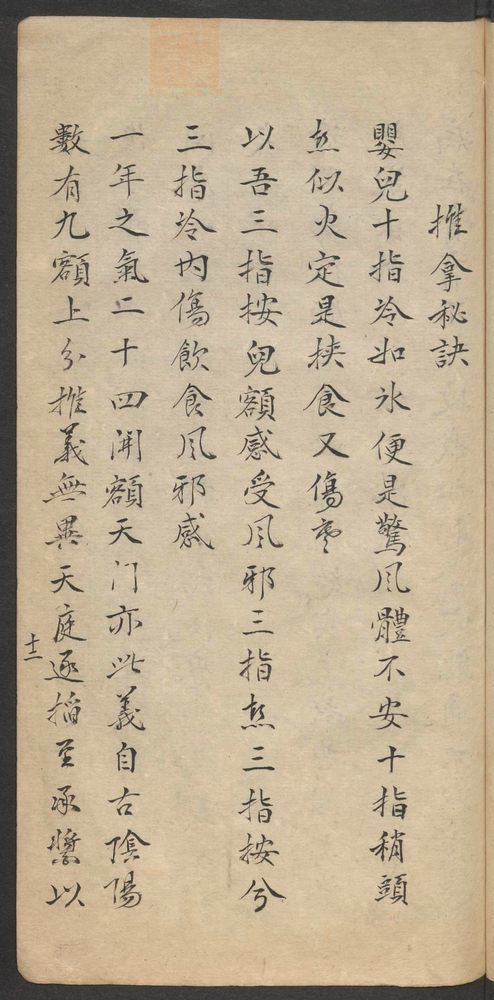 推拿秘訣
嬰兒十指冷如氷便是驚风體不安十指稍頭
熱似火定是挾食又傷寒
以吾三指按兒額感受风邪三指熱三指按兮
三指冷内傷飲食风邪感
一年之氣二十四開額天门亦此義自古陰陽
數有九額上分推義無異天庭逐掐至承漿以
十二